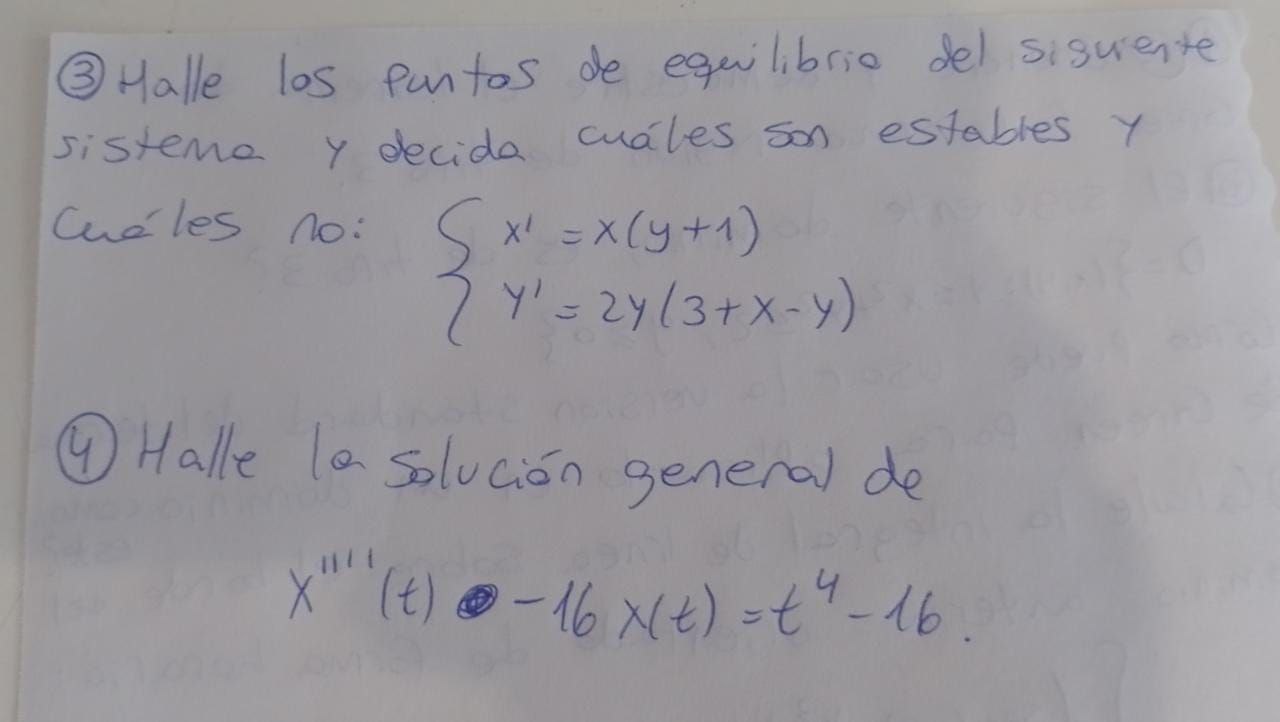 ③ Halle los puntos de equilibrio del siguiente
sistema y decida cuáles son estables y
Cuáles no: { x' = x(y+1)
y' = 2y(3+x-y)
④ Halle la solución general de
x''''(t) -16 x(t) = t⁴ -16.